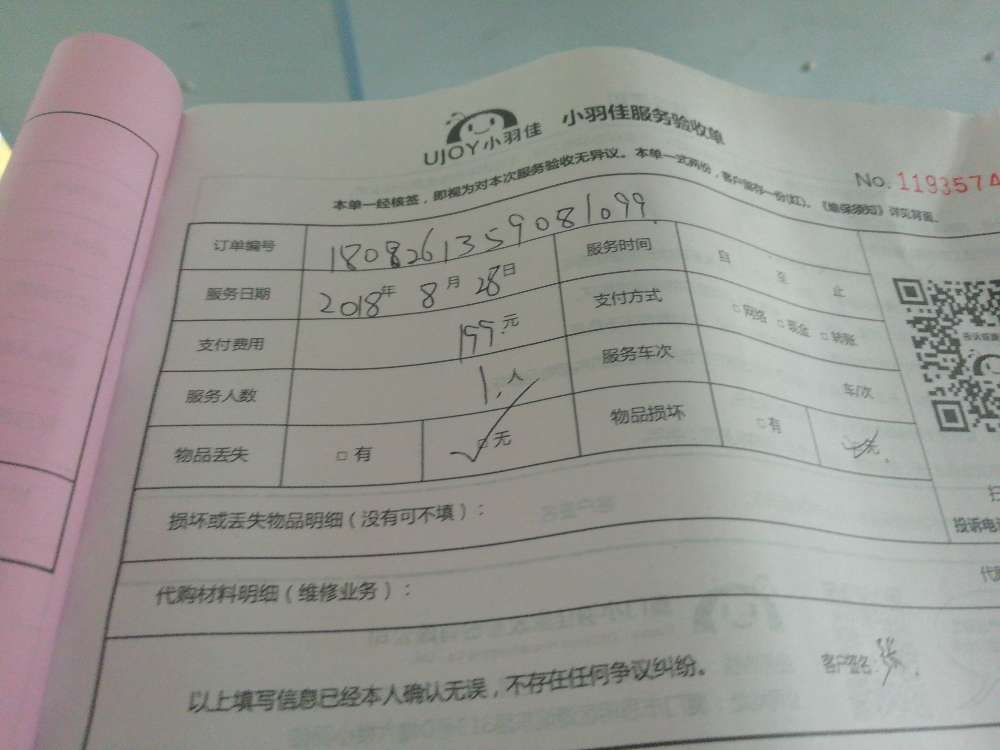 UJOY小羽佳 小羽佳服务验收单
本单一经核签，即视为对本次服务验收无异议。本单一式两份，客户留存一份(红)。《维保须知》详见背面。
No. 1193574
订单编号 180826135908 1099 服务时间 自 至 止
服务日期 2018年 8月 28日 支付方式 □网络 □现金 □转账
支付费用 199元 服务车次 车/次
服务人数 1人 物品损坏 □有 □无
物品丢失 □有 □无
损坏或丢失物品明细（没有可不填）：
投诉电
代购材料明细（维修业务）：
代购
以上填写信息已经本人确认无误，不存在任何争议纠纷。 客户签名：